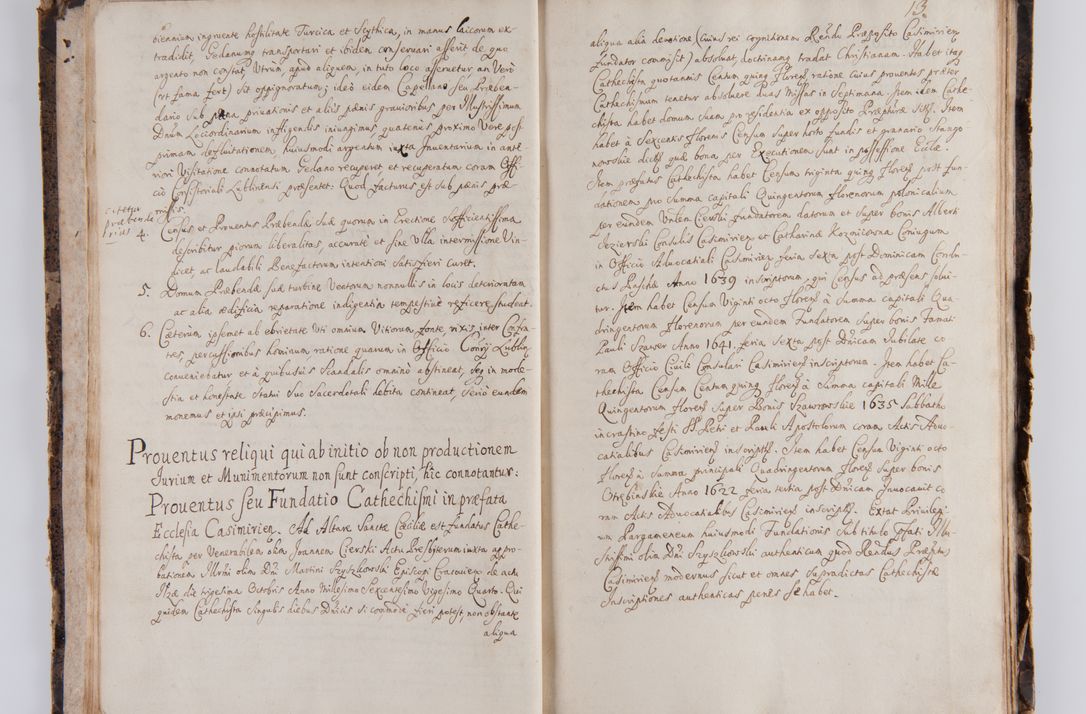 biennium ingruente hostilitate Turcica et Scythica, in manus laicorum ex-
tradidit, Gedanumq transportari et ibidem conservari asserit, de quo
argento non constat, Utrum apud aliquem, in tuto loco asservetur, an Vero
(ut fama fert) sit oppignoratum; ideo eidem Capellano seu Præben-
dario sub pæna privationis et aliis pænis gravioribus per Illustrissimum
Dnum Loci Ordinarium infligendis iniungimus, quatenus proximo Vere post
primam defluitationem, huiusmodi argentum iuxta Inventarium in ante
riori Visitatione connotatum Gedano recuperet et recuperatum coram Offi-
cio Consistoriali Lublinensi præsentet. Quod facturus est sub pænis præ-
missis.
4. Census et Proventus Præbendæ suæ quorum in Erectione sufficientissima
describitur piorum liberalitas, accurate et sine Ulla intermissione Vin-
dicet, ac laudabili Benefactorum intentioni satisfieri curet.
5. Domum Præbendæ suæ turbine Ventorum nonnullis in locis deterioratam
ac alia ædificia reparatione indigentia tempestive reficere studeat.
6. Cæterum ipsemet ab ebrietate Uti omnium Vitiorum fonte, rixis inter Confra-
tres, percussionibus hominum ratione quarum in Officio Conrij Lublin
conveniebatur et a quibusvis scandalis omnino abstineat, seq in mode-
stia et honestate statui suo Sacerdotali debita contineat, serio eundem
monemus et ipsi præcipimus.
Proventus reliqui qui ab initio ob non productionem
Iurium et Munimentorum non sunt conscripti, hic connotantur:
Proventus seu Fundatio Cathechismi in præfata
Ecclesia Casimirien. Ad Altare Sanctæ Cæciliæ est fundatus Cathe-
chista per Venerabilem olim Joannem Cierski Actu Presbiterum iuxta appro-
bationem Illrmi olim Dni Martini Szyszkowski Episcopi Cracovien de actu
die trigesima Octobris Anno Millesimo Sexcentesimo Vigesimo Quarto. Qui
quidem Cathechista singulis diebus Dnicis si commode fieri potest, non obstante
aliqua
13
aliqua alia devotione (cuius rei cognitionem Rendo Præposito Casimirien
fundator commisit) absolvat, doctrinamq tradat Christianam. Habet itaq
Cathechista quotannis Censum quinq Floren ratione cuius proventus præter
Cathechismum tenetur absolvere duas Missas in Septimana. Item idem Cathe-
chista habet domum suam pro residentia ex opposito Præpturæ sitæ. Item
habet a Sexcentis florenis Censum super horto fundis et granario Stango-
nowskie dictis, quæ bona per Executionem sunt in possessione Eccle.
Item præfatus Cathechista habet Censum triginta quinq Floren post fun-
dationem pro Summa capitali Quingentorum Florenorum polonicalium
per eundem Vnblem Cierski fundatorem datorum et super bonis Alberti
Jezierski Consulis Casimirien et Catharinæ Koznicowna Coniugum
in Officio Advocatiali Casimirien feria Sexta post Dominicam Condu-
ctus Paschæ Anno 1639 inscriptorum, qui Census ad præsens solvi-
tur. Item habet Censum Viginti octo Floren a Summa capitali Qua-
dringentorum Florenorum per eundem Fundatorem super bonis Famati
Pauli Szawer Anno 1641. feria Sexta post Dnicam Iubilate co
ram Officio Civili Consulari Casimirien inscriptorum. Item habet Ca-
thechista Censum Centum quinq Floren a Summa capitali Mille
Quingentorum Floren super Bonis Szawrowskie 1635. Sabbatho
in crastino festi SS. Petri et Pauli Apostolorum coram Actis Advo-
catialibus Casimirien inscripts. Item habet Census Viginti octo
Floren a Summa principali Quadringentorum Floren super bonis
Otrębinskie Anno 1622 feria tertia post Dnicam Invocavit co
ram Actis Advocatialibus Casimirien inscripts. Extat Privilegi-
um Pargameneum huiusmodi Fundationis sub titulo Pfati Illu-
strissimi olim Dni Szyszkowski authenticum quod Rendus Præptus
Casimirien modernus sicut et omnes supradictas Cathechistæ
Inscriptiones authenticas penes se habet.